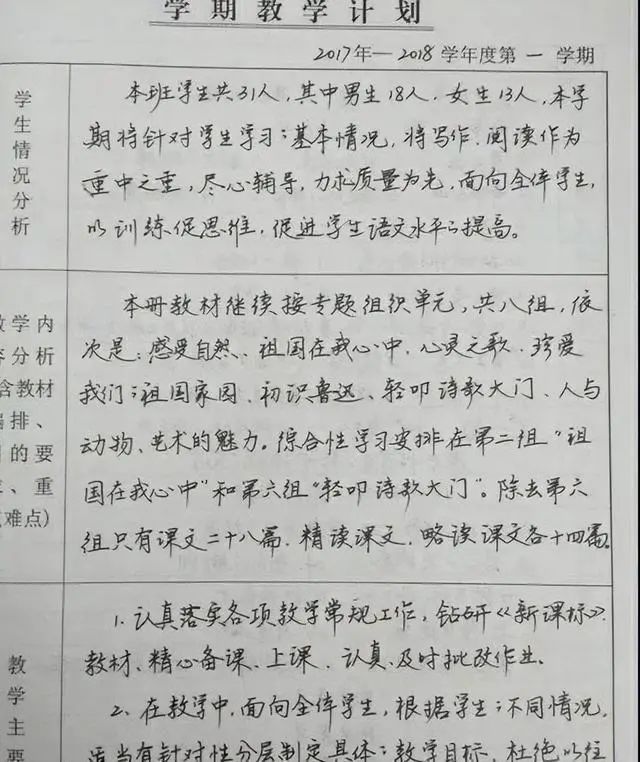 学期教学计划
2017年—2018学年度第一学期
学生情况分析
本班学生共31人，其中男生18人，女生13人，本学
期将针对学生学习的基本情况，将写作、阅读作为
重中之重，尽心辅导，力求质量为先，面向全体学生，
以训练促思维，促进学生语文水平的提高。
教学内
容分析
含教材
编排、
的要
重
难点)
本册教材继续按专题组织单元，共八组，依
次是：感受自然、祖国在我心中、心灵之歌、珍爱
我们的祖国家园、初识鲁迅、轻叩诗歌大门、人与
动物、艺术的魅力。综合性学习安排在第二组“祖
国在我心中”和第六组“轻叩诗歌大门”。除去第六
组只有课文二十八篇，精读课文、略读课文各十四篇。
教学主要
1、认真落实各项教学常规工作，钻研《新课标》
教材、精心备课、上课、认真、及时批改作业。
2、在教学中，面向全体学生，根据学生的不同情况，
适当有针对性分层制定具体的教学目标，杜绝以往